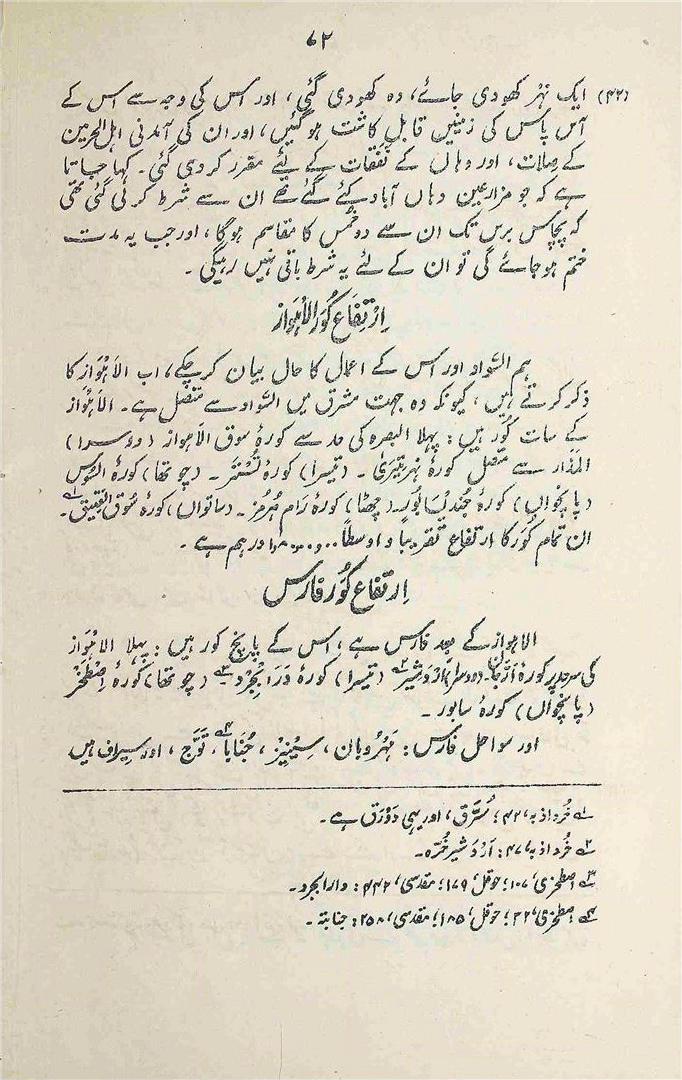 ۶۲
(۴۲۲) ایک نہر کھودی جائے، وہ کھودی گئی، اور اس کی وجہ سے اس کے
آس پاس کی زمینیں قابلِ کاشت ہو گئیں، اور ان کی آمدنی اہل الحرمین
کے صِلات، اور وہاں کے نفقات کے لئے مقرر کر دی گئی۔ کہا جاتا
ہے کہ جو مزارعین وہاں آباد کئے گئے تھے ان سے شرط کر لی گئی تھی
کہ پچاس برس تک ان سے دو خُمس کا مقاسمہ ہوگا، اور جب یہ مدت
ختم ہو جائے گی تو ان کے لئے یہ شرط باقی نہیں رہیگی۔
اِرْتِفَاع کُوَر الْاَہْوَاز
ہم السَّواد اور اس کے اعمال کا حال بیان کر چکے، اب الاَہْوَاز کا
ذکر کرتے ہیں، کیونکہ وہ جہت مشرق میں السَّواد سے متصل ہے۔ الاَہْوَاز
کے سات کُوَر ہیں: پہلا البصرہ کی حد سے کورۂ سوق الاَہواز (دوسرا)
المَذَار سے متصل کورۂ نہر تِیریٰ۔ (تیسرا) کورۂ تُسْتَر۔ (چوتھا) کورۂ السُّوس
(پانچواں) کورۂ جُندَیسابُور۔ (چھٹا) کورۂ رَام ہُرمُز۔ (ساتواں) کورۂ سُوق العَتِیق۔ ۱؎
ان تمام کُوَر کا ارتفاع تقریباً و اوسطاً درہم ہے۔
اِرتفاع کُوَر فارس
الاہواز کے بعد فارس ہے، اس کے پانچ کور ہیں: پہلا الاہْوَاز
کی سرحد پر کورۂ اَرَّجَان۔ (دوسرا) اَرْدَشیر ۲؎ (تیسرا) کورۂ دَرَابْجِرْد۔ ۳؎ (چوتھا) کورۂ اِصْطَخْر
(پانچواں) کورۂ سابور۔
اور سواحل فارس: مَہْرُوبان، سِینِیز، جُنّابا ۴؎، تَوَّج، اور سیراف ہیں
۱؎ خُرداذبہ، ۴۲: سُرَّق، اور یہی دَوْرَق ہے۔
۲؎ خُرداذبہ، ۴۷: اَرْدَشیر خُرّہ۔
۳؎ اصطخری، ۱۰۷؛ حوقل، ۱۷۹؛ مقدسی، ۴۴۲: دارابجرد۔
۴؎ اصطخری، ۳۲؛ حوقل، ۱۸۵؛ مقدسی، ۲۵۸: جنابۃ۔